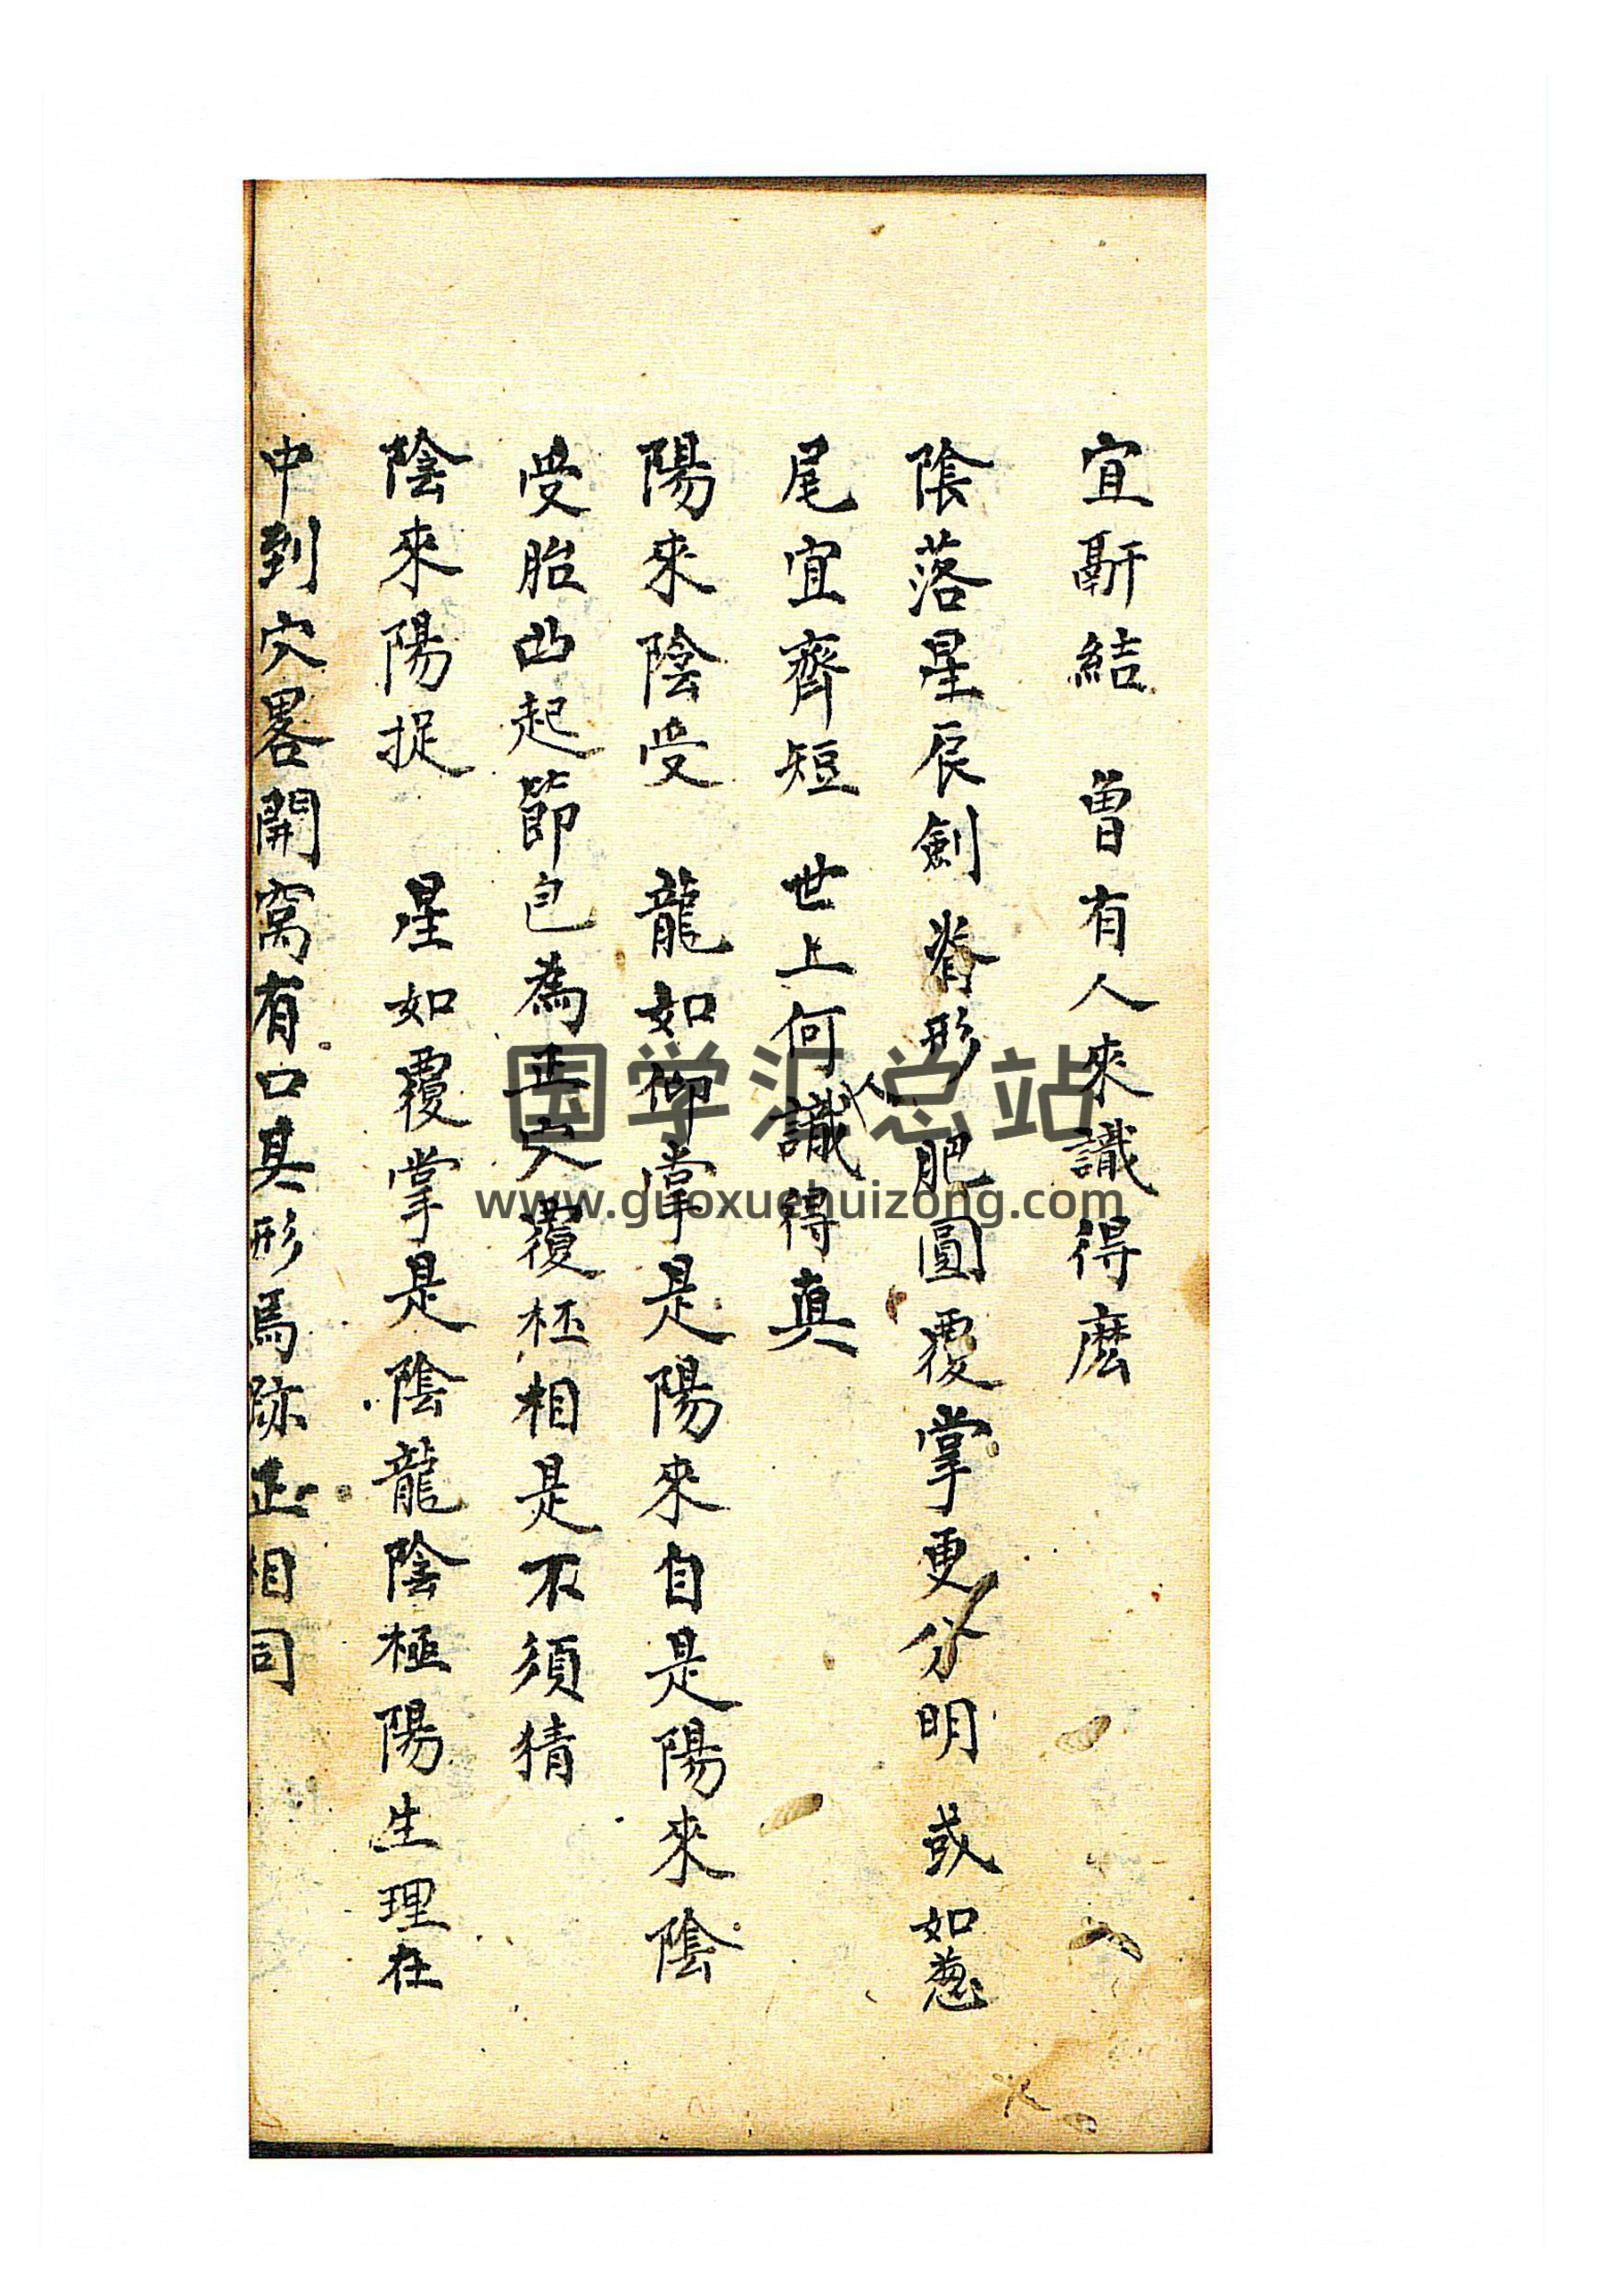 宜斸結　曾有人來識得麽
陰落星辰劍脊形　肥圓覆掌更分明　或如葱
尾宜齊短　世上何人識得真
陽來陰受　龍如仰掌是陽來　自是陽來陰
受胎　凸起節包為正穴　覆杯相是不須猜
陰來陽捉　星如覆掌是陰龍　陰極陽生理在
中　到穴畧開窩有口　具形馬跡正相同
国学汇总站
www.guoxuehuizong.com